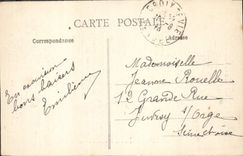 CARTE POSTALE
Correspondance
Adresse
En excursion
bons baisers
Emilienne
Mademoiselle
Jeanne Rouelle
12 Grande Rue
Juvisy s/Orge
Seine et Oise